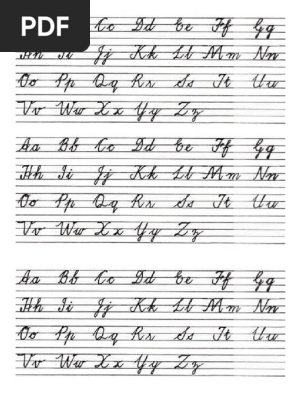 PDF
Cc Dd Ee Ff Gg
Hh Ii Jj Kk Ll Mm Nn
Oo Pp Qq Rr Ss Tt Uu
Vv Ww Xx Yy Zz
Aa Bb Cc Dd Ee Ff Gg
Hh Ii Jj Kk Ll Mm Nn
Oo Pp Qq Rr Ss Tt Uu
Vv Ww Xx Yy Zz
Aa Bb Cc Dd Ee Ff Gg
Hh Ii Jj Kk Ll Mm Nn
Oo Pp Qq Rr Ss Tt Uu
Vv Ww Xx Yy Zz